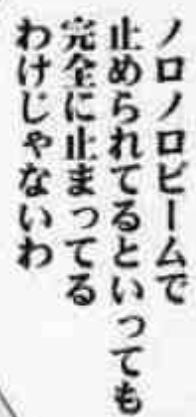 ノロノロビームで
止められてるといっても
完全に止まってる
わけじゃないわ